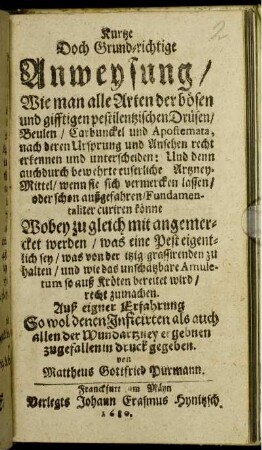 2
Kurtze
Doch Grund-richtige
Anweysung/
Wie man alle Arten der bösen
und gifftigen pestilentzischen Drüsen/
Beulen/ Carbunckel und Apostemata,
nach deren Ursprung und Ansehen recht
erkennen und unterscheiden: Und denn
auch durch bewehrte euserliche Artzney-
Mittel/ wenn sie sich vermercken lassen/
oder schon außgefahren/ Fundamen-
taliter curiren könne
Wobey zugleich mit angemer-
cket werden/ was eine Pest eigent-
lich sey/ was von der itzig grassirenden zu
halten/ und wie das unschätzbare Amule-
tum so auß Kröten bereitet wird/
recht zumachen.
Auß eigner Erfahrung
So wol denen Inficirten als auch
allen der Wundartzney ergebnen
zugefallen in druck gegeben.
von
Mattheus Gottfried Purmann.
Franckfurt am Mäyn
Verlegts Johann Erasmus Hynitzsch.
1680.